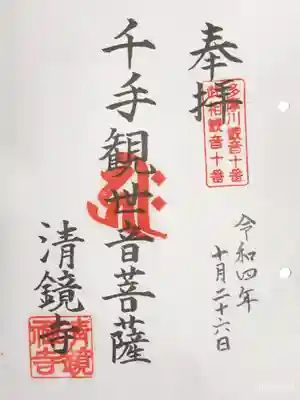 奉拝
多摩川観音十番
武相観音十番
令和四年
十月二十六日
千手観世音菩薩
清鏡寺
清鏡
福寺